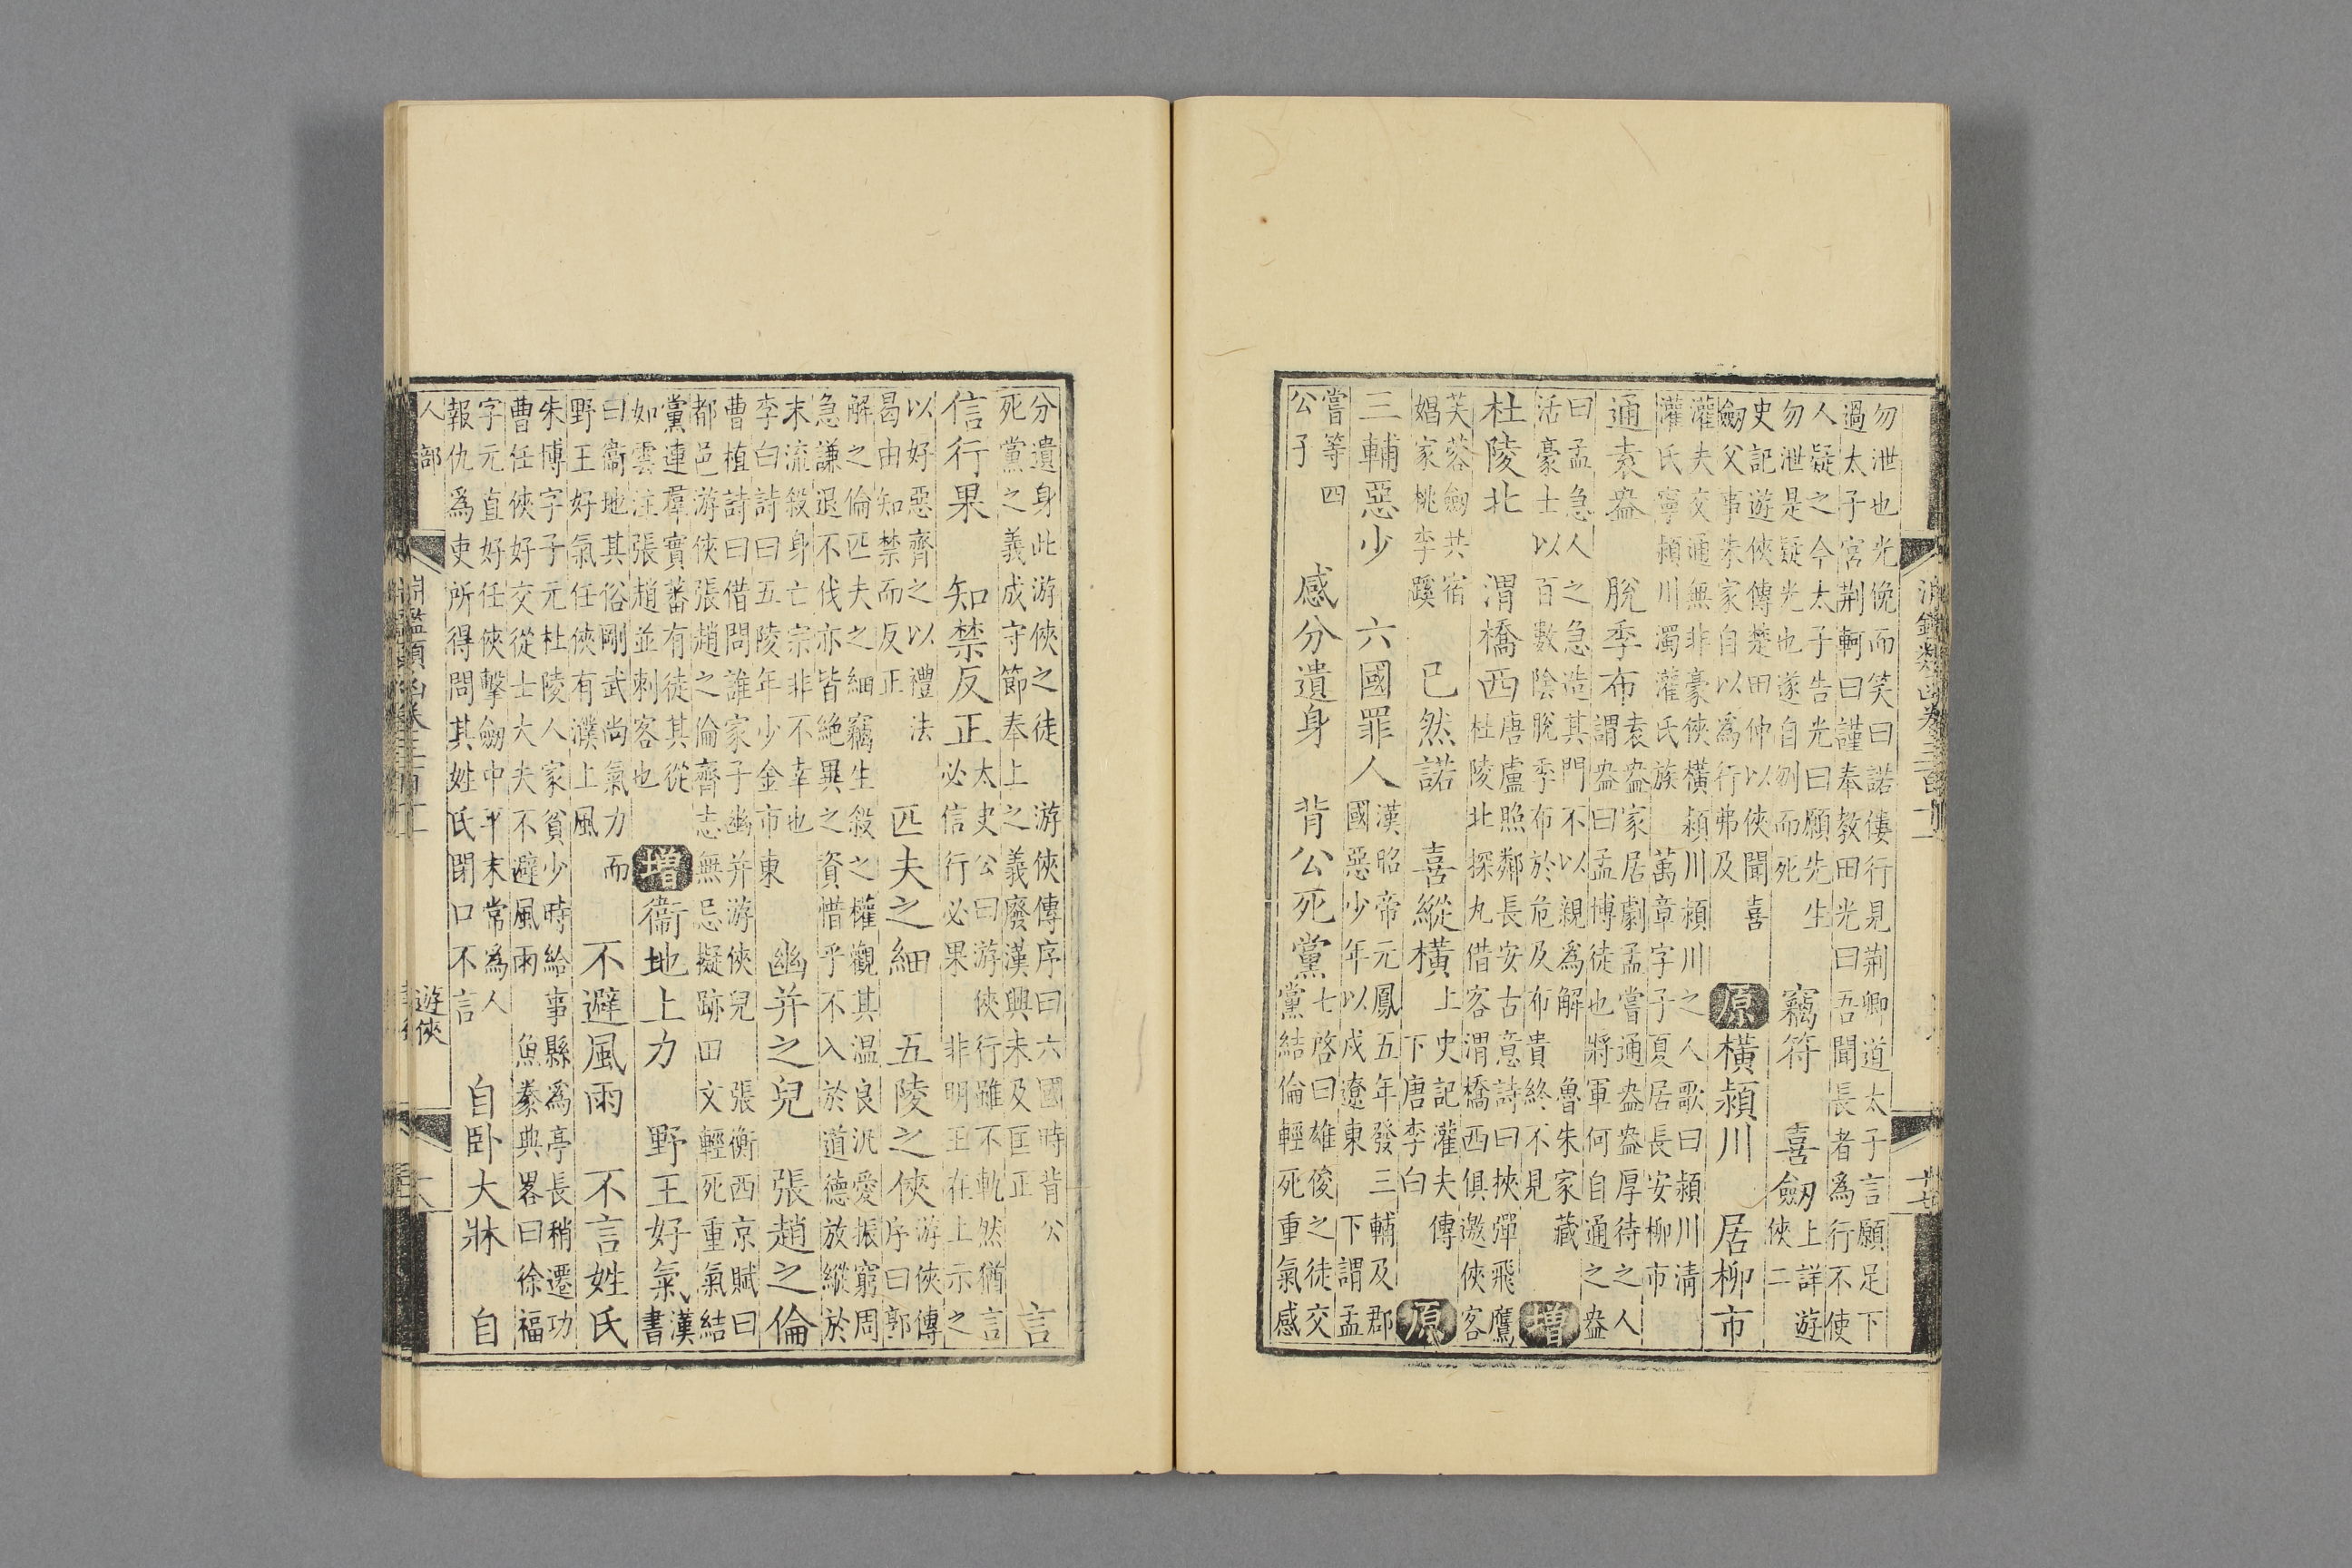 勿泄也光俛而笑曰諾僂行見荊卿道太子言願足下
過太子宮荊軻曰謹奉教田光曰吾聞長者為行不使
人疑之今太子告光曰願先生
勿泄是疑光也遂自刎而死
竊符 喜劒
上詳遊
俠二
史記遊俠傳楚田仲以俠聞喜
劒父事朱家自以為行弗及
原 橫潁川 居柳市
灌夫交通無非豪俠橫潁川潁川之人歌曰潁川清
灌氏寧潁川濁灌氏族 萬章字子夏居長安柳市
通袁盎 脫季布
袁盎家居劇孟嘗通盎盎厚待之人
謂盎曰孟博徒也將軍何自通之盎
曰孟急人之急造其門不以親為解 魯朱家藏
活豪士以百數陰脫季布於危及布貴終不見
增
杜陵北 渭橋西
唐盧照鄰長安古意詩曰挾彈飛鷹
杜陵北探丸借客渭橋西俱邀俠客
芙蓉劒共宿
娼家桃李蹊
已然諾 喜縱橫
上史記灌夫傳
下唐李白
原
三輔惡少 六國罪人
漢昭帝元鳳五年發三輔及郡
國惡少年以戍遼東 下謂孟
嘗等四
公子
感分遺身 背公死黨
七啓曰雄俊之徒交
黨結倫輕死重氣感
分遺身此游俠之徒 游俠傳序曰六國時背公
死黨之義成守節奉上之義廢漢興未及匡正
言
信行果 知禁反正
太史公曰游俠行雖不軌然猶言
必信行必果 非明王在上示之
以好惡齊之以禮法
曷由知禁而反正
匹夫之細 五陵之俠
游俠傳
序曰郭
解之倫匹夫之細竊生殺之權觀其温良汎愛振窮周
急謙退不伐亦皆絶異之資惜乎不入於道德放縱於
末流殺身亡宗非不幸也
李白詩曰五陵年少金市東
幽并之兒 張趙之倫
曹植詩曰借問誰家子幽并游俠兒 張衡西京賦曰
都邑游俠張趙之倫齊志無忌擬跡田文輕死重氣結
黨連羣實蕃有徒其從
如雲注張趙並刺客也
增 衞地上力 野王好氣
漢
書
曰衞地其俗剛武尚氣力而
野王好氣任俠有濮上風
不避風雨 不言姓氏
朱博字子元杜陵人家貧少時給事縣為亭長稍遷功
曹任俠好交從士大夫不避風雨 魚豢典畧曰徐福
字元直好任俠擊劒中平末常為人
報仇為吏所得問其姓氏閉口不言
自卧大牀 自
人部
遊俠